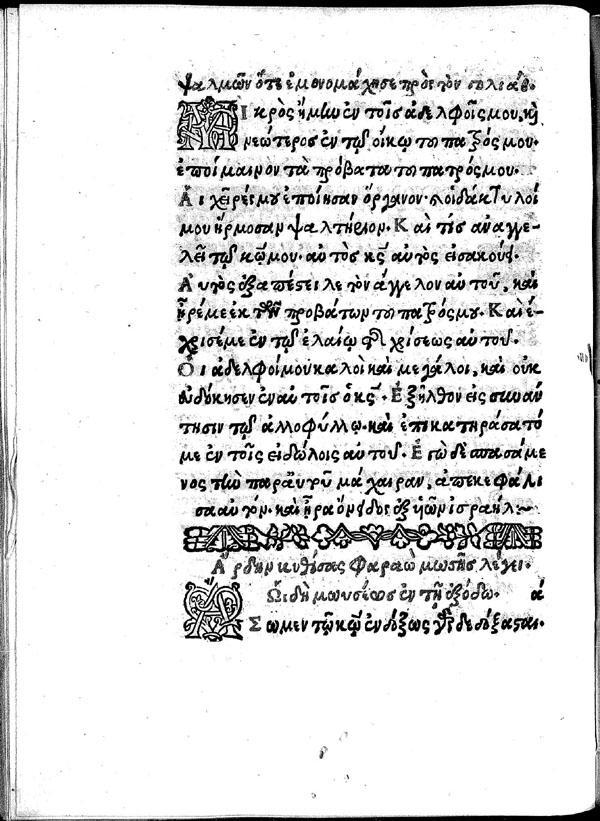 ψαλμῶν ὅτε ἐμονομάχησε πρὸς τὸν γολιάθ.
Μικρὸς ἤμην ἐν τοῖς ἀδελφοῖς μου, καὶ
νεώτερος ἐν τῷ οἴκῳ τοῦ πατρός μου.
ἐποίμαινον τὰ πρόβατα τοῦ πατρός μου.
Αἱ χεῖρές μου ἐποίησαν ὄργανον. οἱ δάκτυλοί
μου ἥρμοσαν ψαλτήριον. Καὶ τίς ἀναγγε-
λεῖ τῷ κῷ μου. αὐτὸς κς αὐτὸς εἰσακούει.
Αὐτὸς ἐξαπέστειλε τὸν ἄγγελον αὐτοῦ, καὶ
ἦρέ με ἐκ τῶν προβάτων τοῦ πατρός μου. Καὶ ἔ-
χρισέ με ἐν τῷ ἐλαίῳ τῆς χρίσεως αὐτοῦ.
Οἱ ἀδελφοί μου καλοὶ καὶ μεγάλοι, καὶ οὐκ
εὐδόκησεν ἐν αὐτοῖς ὁ κς. Ἐξῆλθον εἰς συνάν
τησιν τῷ ἀλλοφύλλῳ. καὶ ἐπικατηράσατό
με ἐν τοῖς εἰδώλοις αὐτοῦ. Ἐγὼ δὲ σπασάμε
νος τὴν παρ' αὐτοῦ μάχαιραν, ἀπεκεφάλι
σα αὐτόν. καὶ ἦρα ὄνειδος ἐξ υἱῶν ισραήλ.
Ἄρδην κυθίσας Φαραὼ μωσῆς λέγει.
ᾨδὴ μωυσέως ἐν τῇ ἐξόδῳ. ά
ᾌσωμεν τῷ κῷ ἐνδόξως γὰρ δεδόξασται.